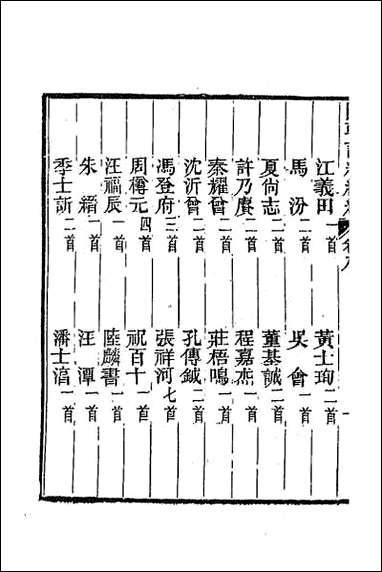 江義田一首 黃士珣二首
馬汾二首 吳會一首
夏尙志二首 董基誠二首
許乃賡一首 程嘉杰一首
秦耀曾二首 莊梧鳴一首
沈沂曾二首 孔傳鉞二首
馮登府三首 張祥河七首
周樽元四首 祝百十一首
汪福辰一首 陸麟書一首
朱縉一首 汪潭一首
季士訢二首 潘士 一首